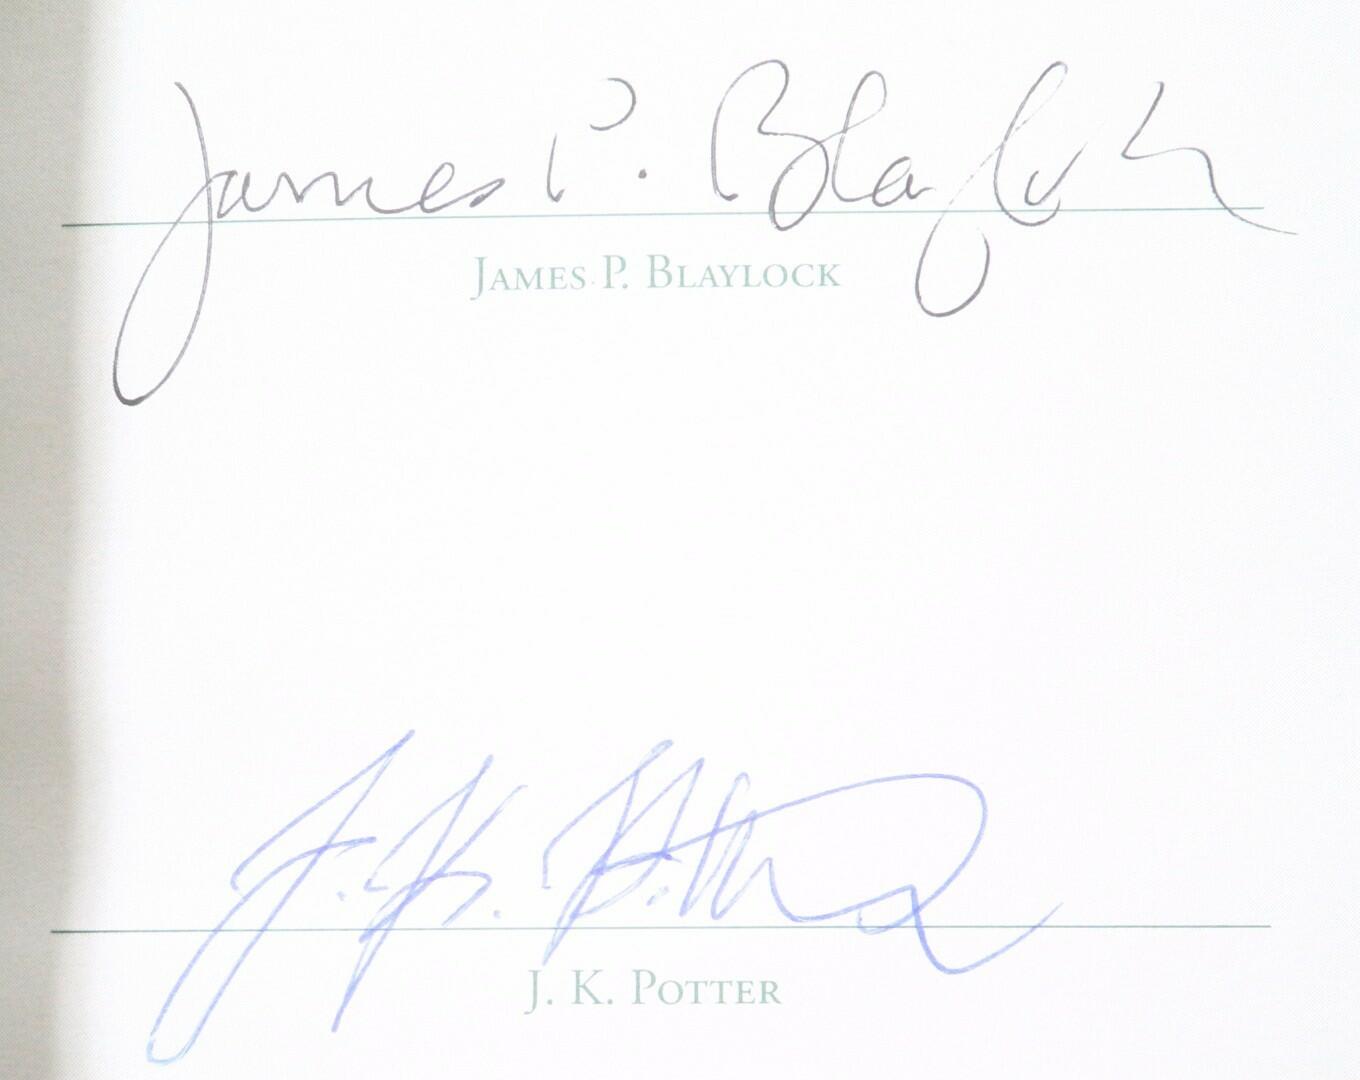 James P. Blaylock
James P. Blaylock
J. K. Potter
J. K. Potter